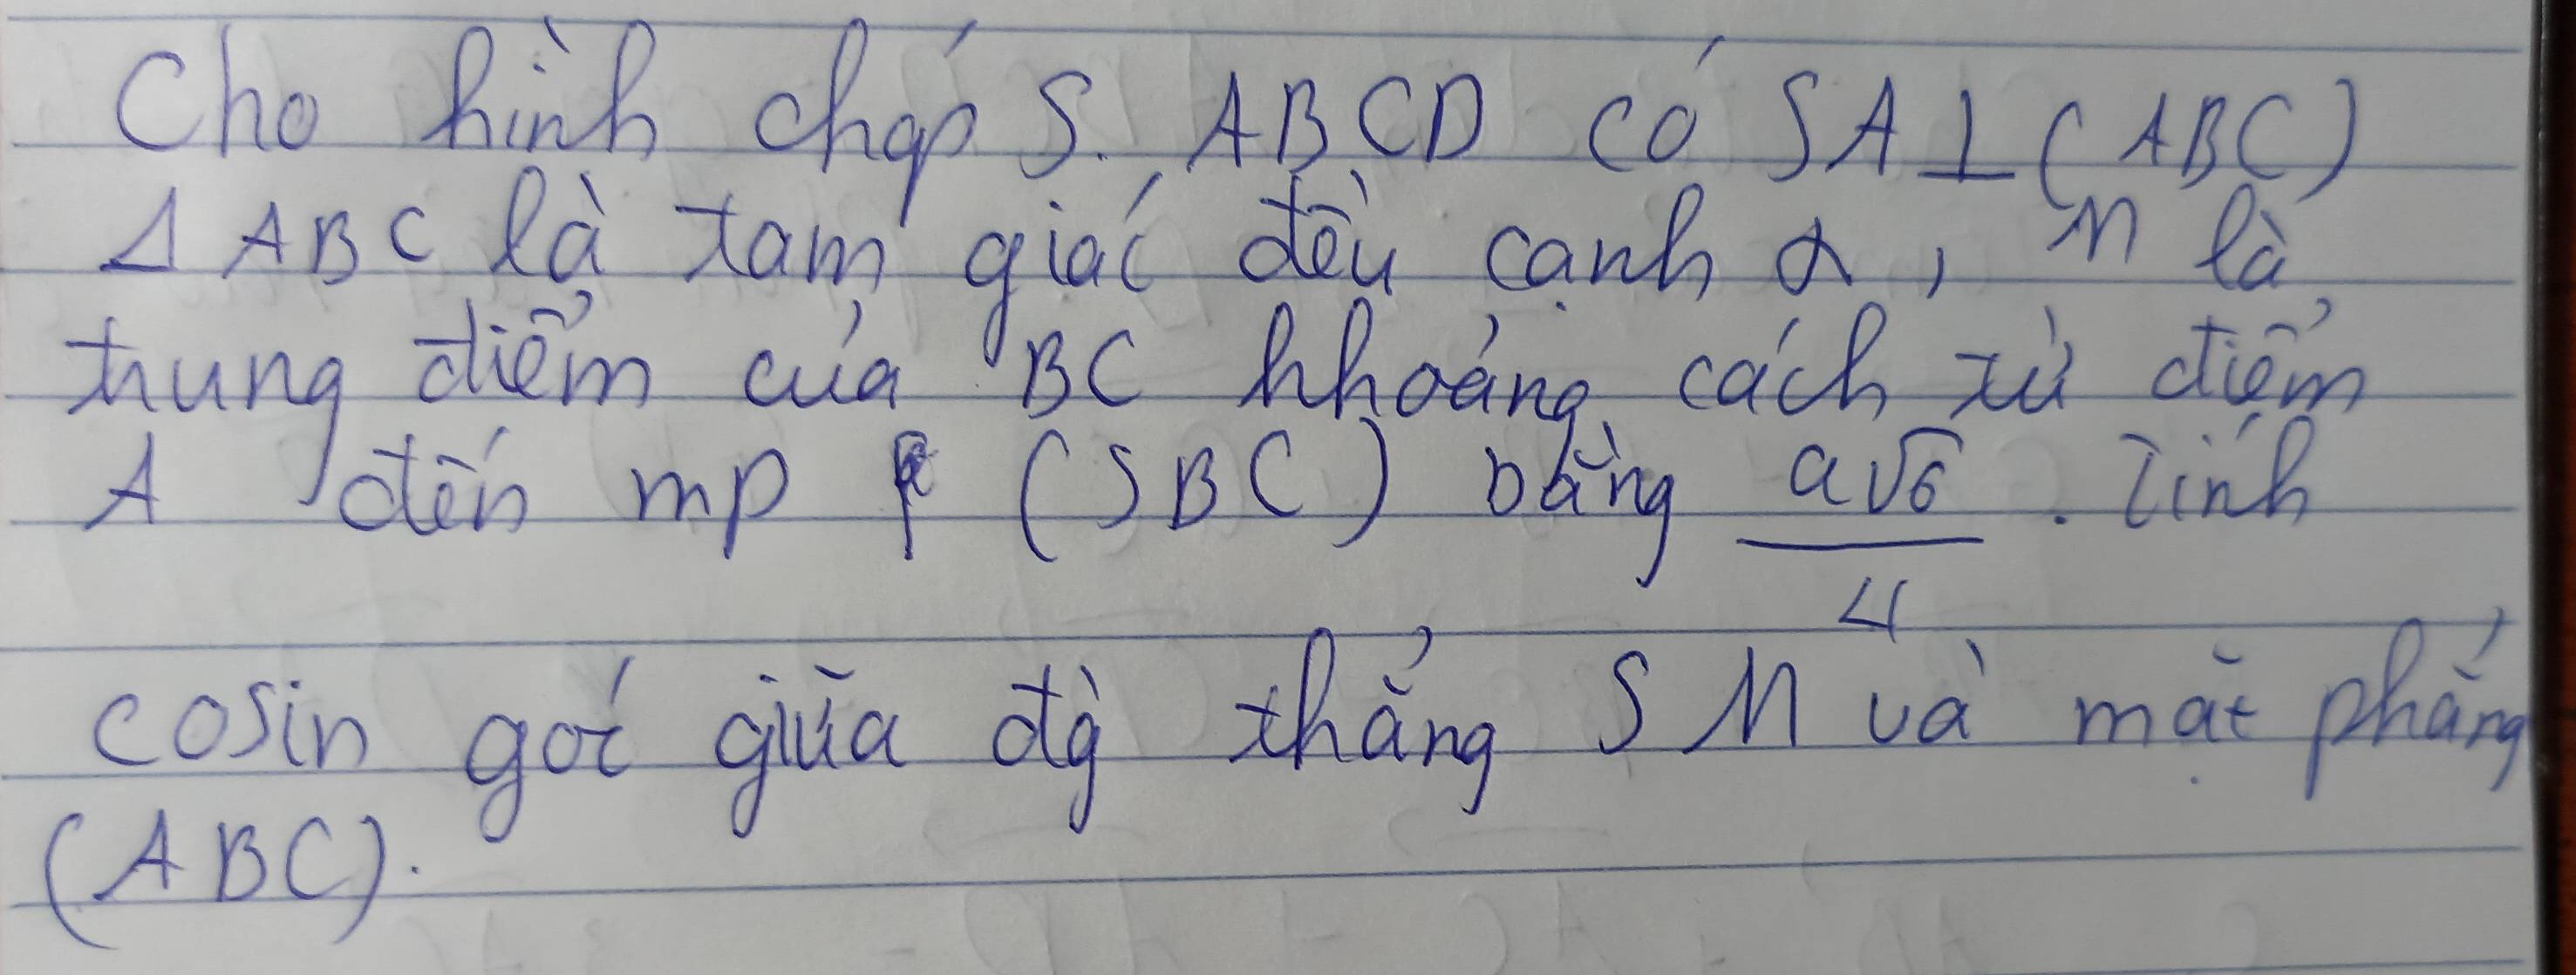 Cho hình chóp S. ABCD có SA⊥(ABC)
Δ ABC là tam giác đều cạnh a, M là
trung điểm của BC khoảng cách từ điểm
A đến mp (SBC) bằng a√6/4. Tính
cosin góc giữa đg̀ thẳng SM và mặt phẳng
(ABC).